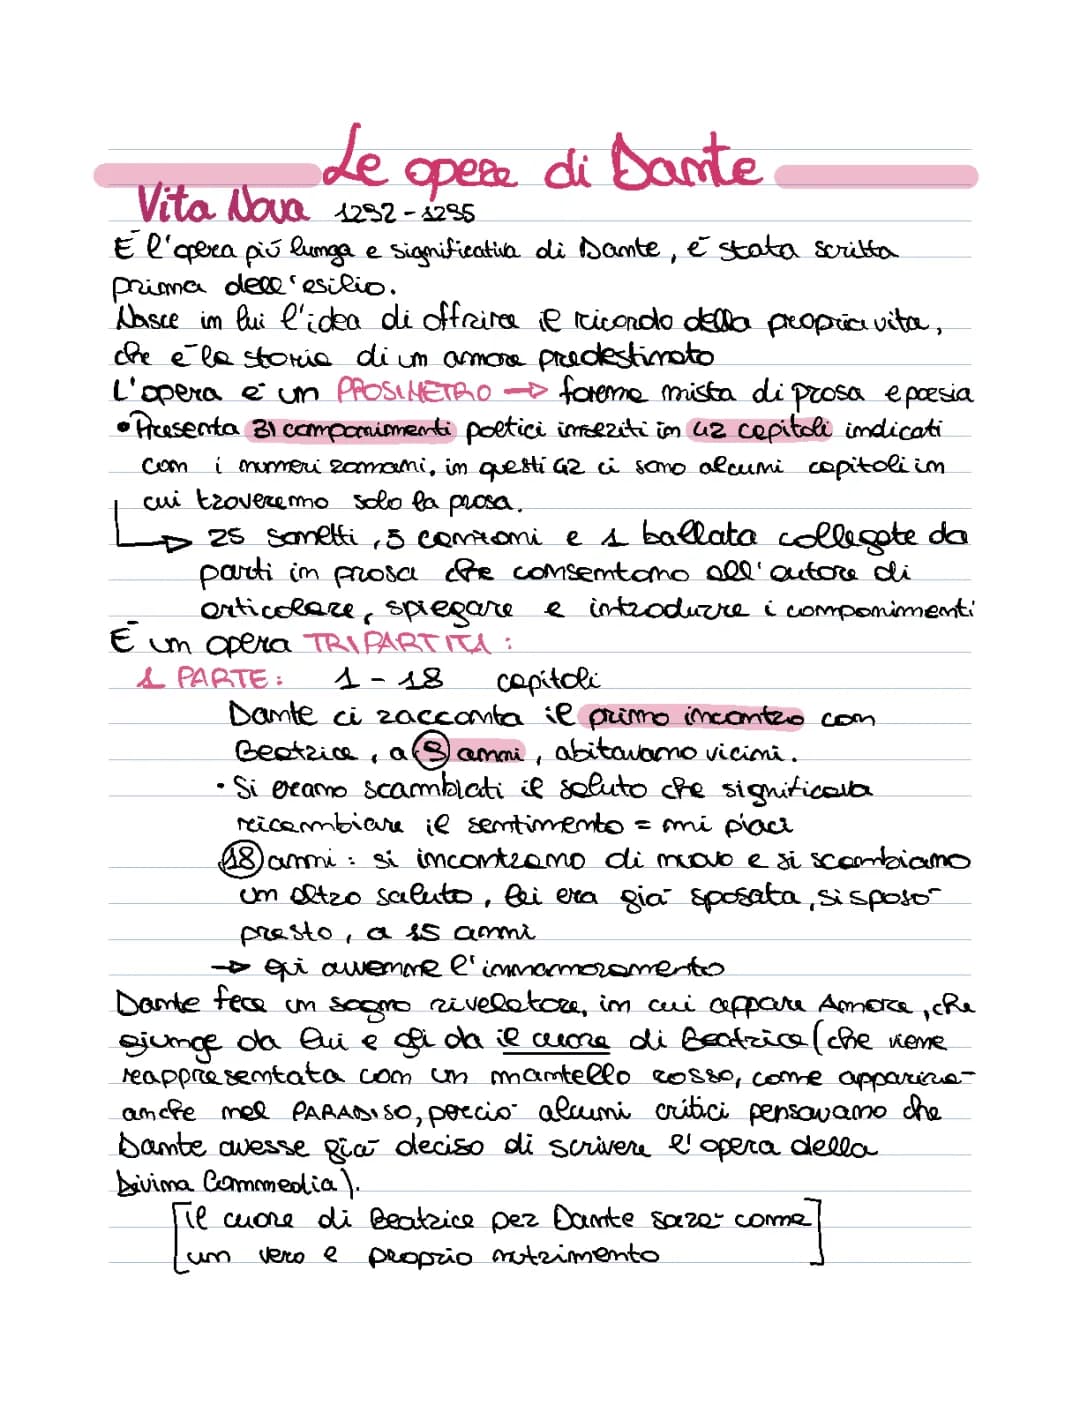 Le opere di Dante
Vita Nova 1292-1295
È l'opera più lunga e significativa di Dante, è stata scritta
prima dell'esilio.
Nasce in lui l'idea di offrire il ricordo della propria vita,
che è la storia di un amore predestinato
L'opera è un PROSIMETRO → forma mista di prosa e poesia
• Presenta 31 componimenti poetici inseriti in 42 capitoli indicati
con i numeri romani, in questi 42 ci sono alcuni capitoli in
cui troveremo solo la prosa.
→ 25 sonetti, 5 canzoni e 1 ballata collegate da
parti in prosa che consentono all'autore di
articolare, spiegare e introdurre i componimenti
È un opera TRIPARTITA:
1 PARTE: 1-18 capitoli
Dante ci racconta il primo incontro con
Beatrice, a 9 anni, abitavamo vicini.
• Si erano scambiati il saluto che significava
reicambiare il sentimento = mi piaci
18 anni: si incontrano di nuovo e si scambiano
un altro saluto, lei era già sposata, si sposò
presto, a 15 anni
→ qui avvenne l'innamoramento
Dante fece un sogno rivelatore, in cui appare Amore, che
giunge da lui e gli da il cuore di Beatrice (che viene
reappresentata con un mantello rosso, come apparirà
anche nel PARADISO, perciò alcuni critici pensavano che
Dante avesse già deciso di scrivere l'opera della
Divina Commedia).
[il cuore di Beatrice per Dante sarà come
un vero e proprio nutrimento]